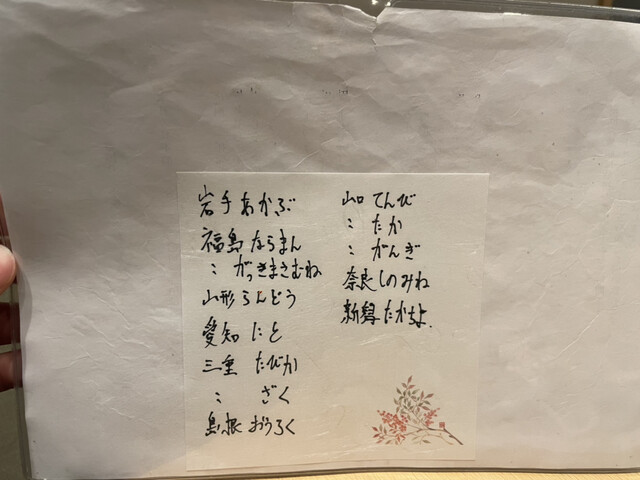 岩手 あかぶ
福島 ならまん
〃 がっきまさむね
山形 らんどう
愛知 にと
三重 たびか
〃 ざく
島根 おうろく
山口 てんび
〃 たか
〃 がんぎ
奈良 しのみね
新潟 たかちよ